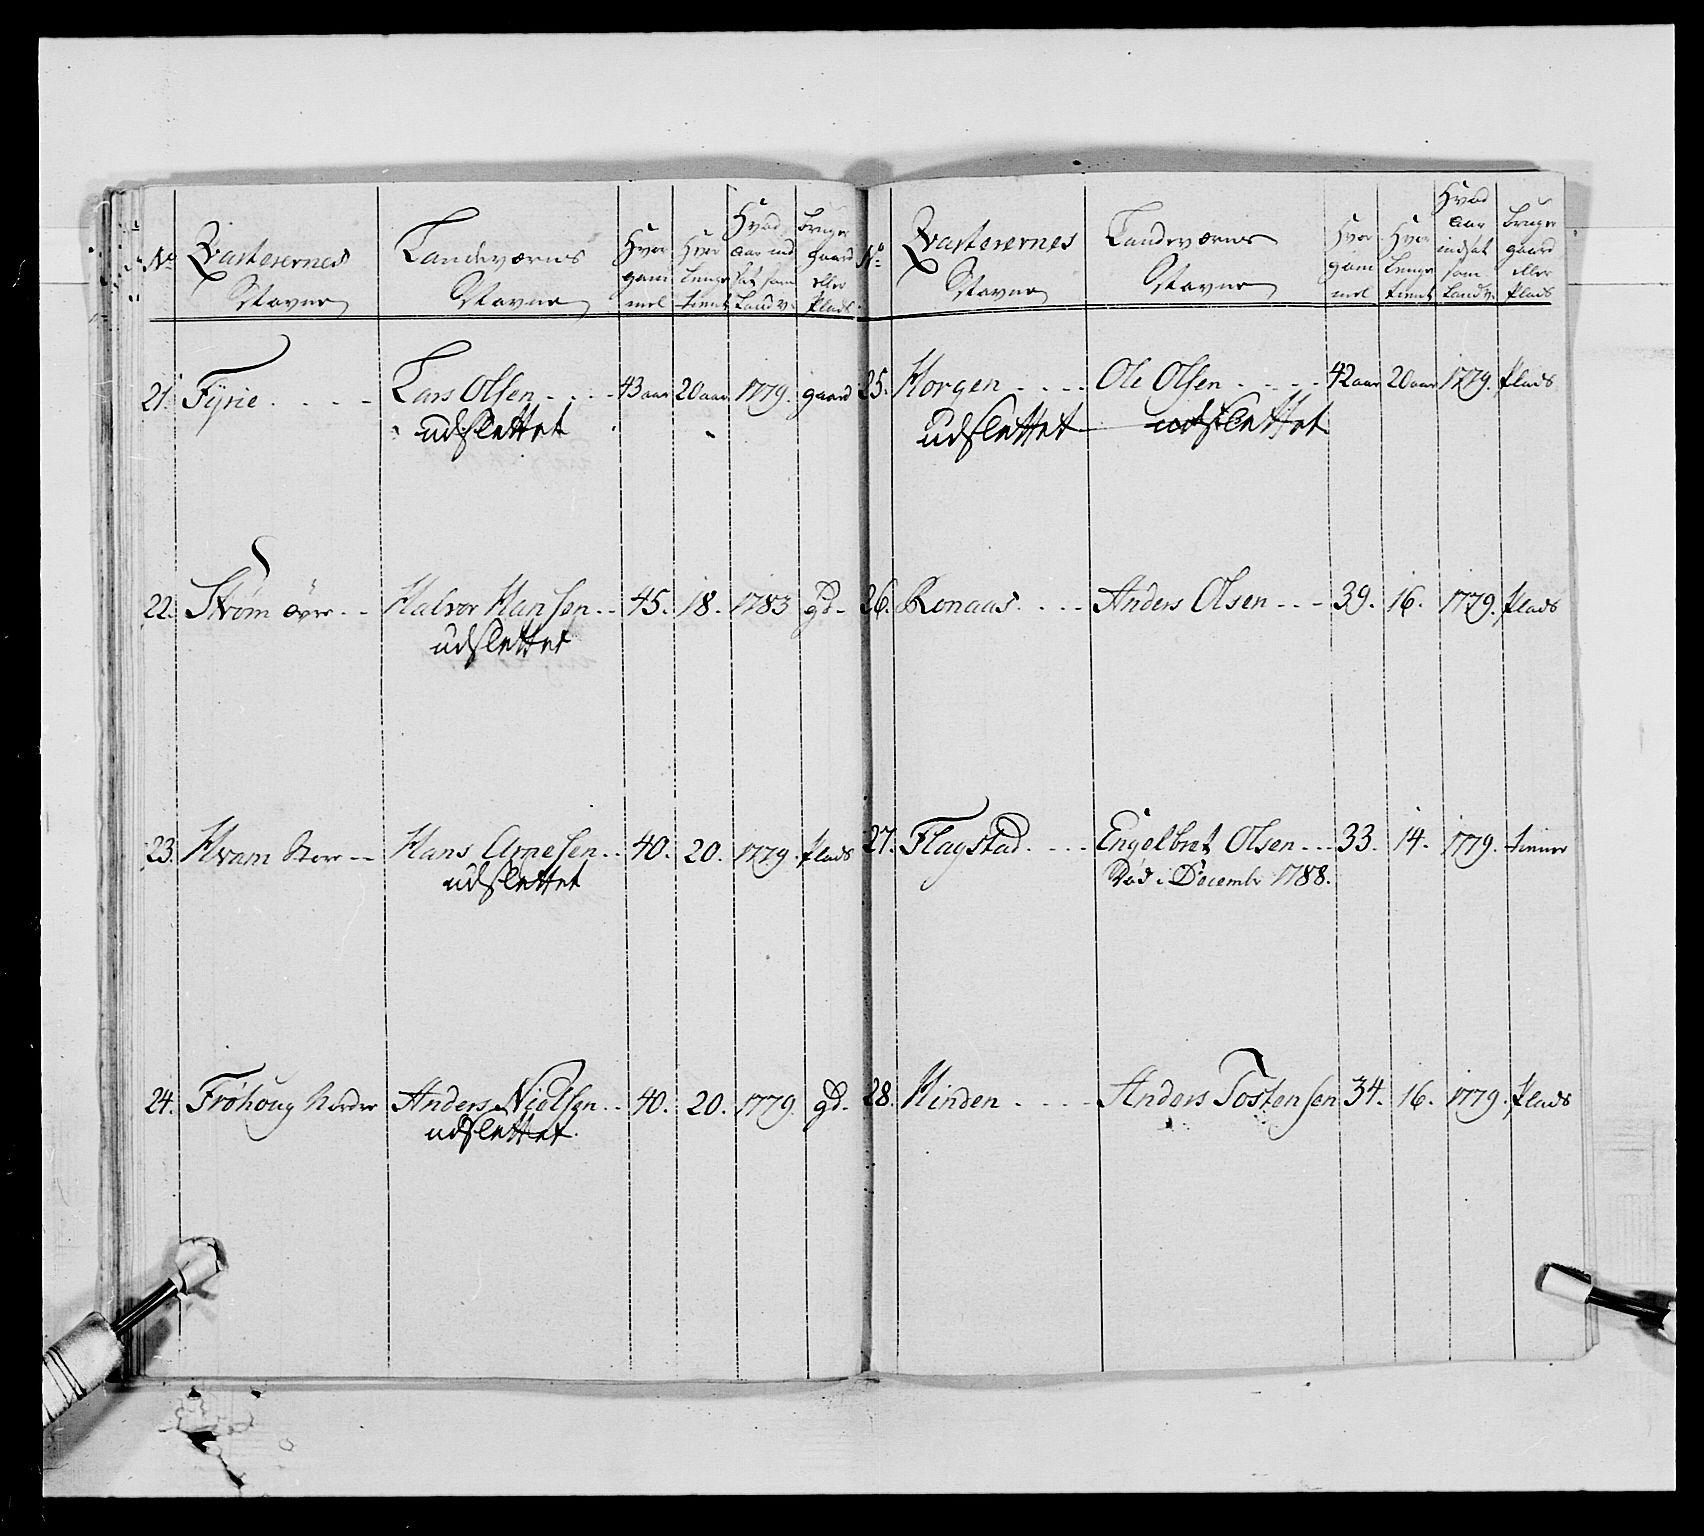 No Qvarterernes Navne Landeværns Navne Hvor gammel Hvor Lenge tient Hvad Aar indsat som Landv: Bruger gaard eller Plads
21. Fyrie . . . . Lars Olsen . . . . 43 aar 20 aar 1779. gaard
udslettet
22. Strøm øvre . . Halvor Hansen . . 45. 18. 1783 gd.
udslettet
23. Kvam Store . . Hans Arnesen . . 40. 20. 1779. Plads
udslettet
24. Frøhoug Nordre Anders Nielsen . . 40. 20. 1779. gd.
udslettet
No Qvarterernes Navne Landeværns Navne Hvor gammel Hvor Lenge tient Hvad Aar indsat som Landv: Bruger gaard eller Plads
25. Horgen . . . . Ole Olsen . . . . 42 aar 20 aar 1779. Plads
udslettet udslettet
26. Ronaas . . . . Anders Olsen . . . 39. 16. 1779. Plads
27. Flagstad . . . . Engelbret Olsen . . . 33. 14. 1779. tienner
Død i Decembr 1788.
28. Hinden . . . . Anders Tostensen 34. 16. 1779. Plads